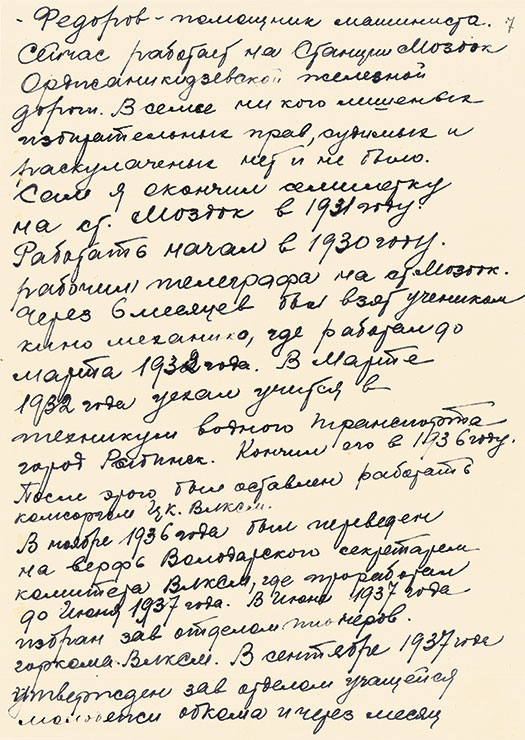 - Федоров - помощник машиниста. 7
Сейчас работает на Станции Моздок
Орджоникидзевской железной
дороги. В семье ни кого лишеных
избирательных прав, судимых и
раскулаченых нет и не было.
Сам я окончил семилетку
на ст. Моздок в 1931 году.
Работать начал в 1930 году.
рабочим телеграфа на ст. Моздок.
Через 6 месяцев был взят учеником
кино механика, где работал до
марта 1932 года. В Марте
1932 года уехал учится в
техникум водного транспорта
город Рыбинск. Кончил его в 1936 году.
После этого был оставлен работать
комсоргом Ц.К. Влксм.
В ноябре 1936 года был переведен
на верфь Володарского секретарем
комитера Влксм, где проработал
до Июня 1937 года. В Июне 1937 года
избран зав отделом пионеров.
горкома Влксм. В сентябре 1937 года
утвержден зав отделом учащейся
молодежи обкома и через месяц